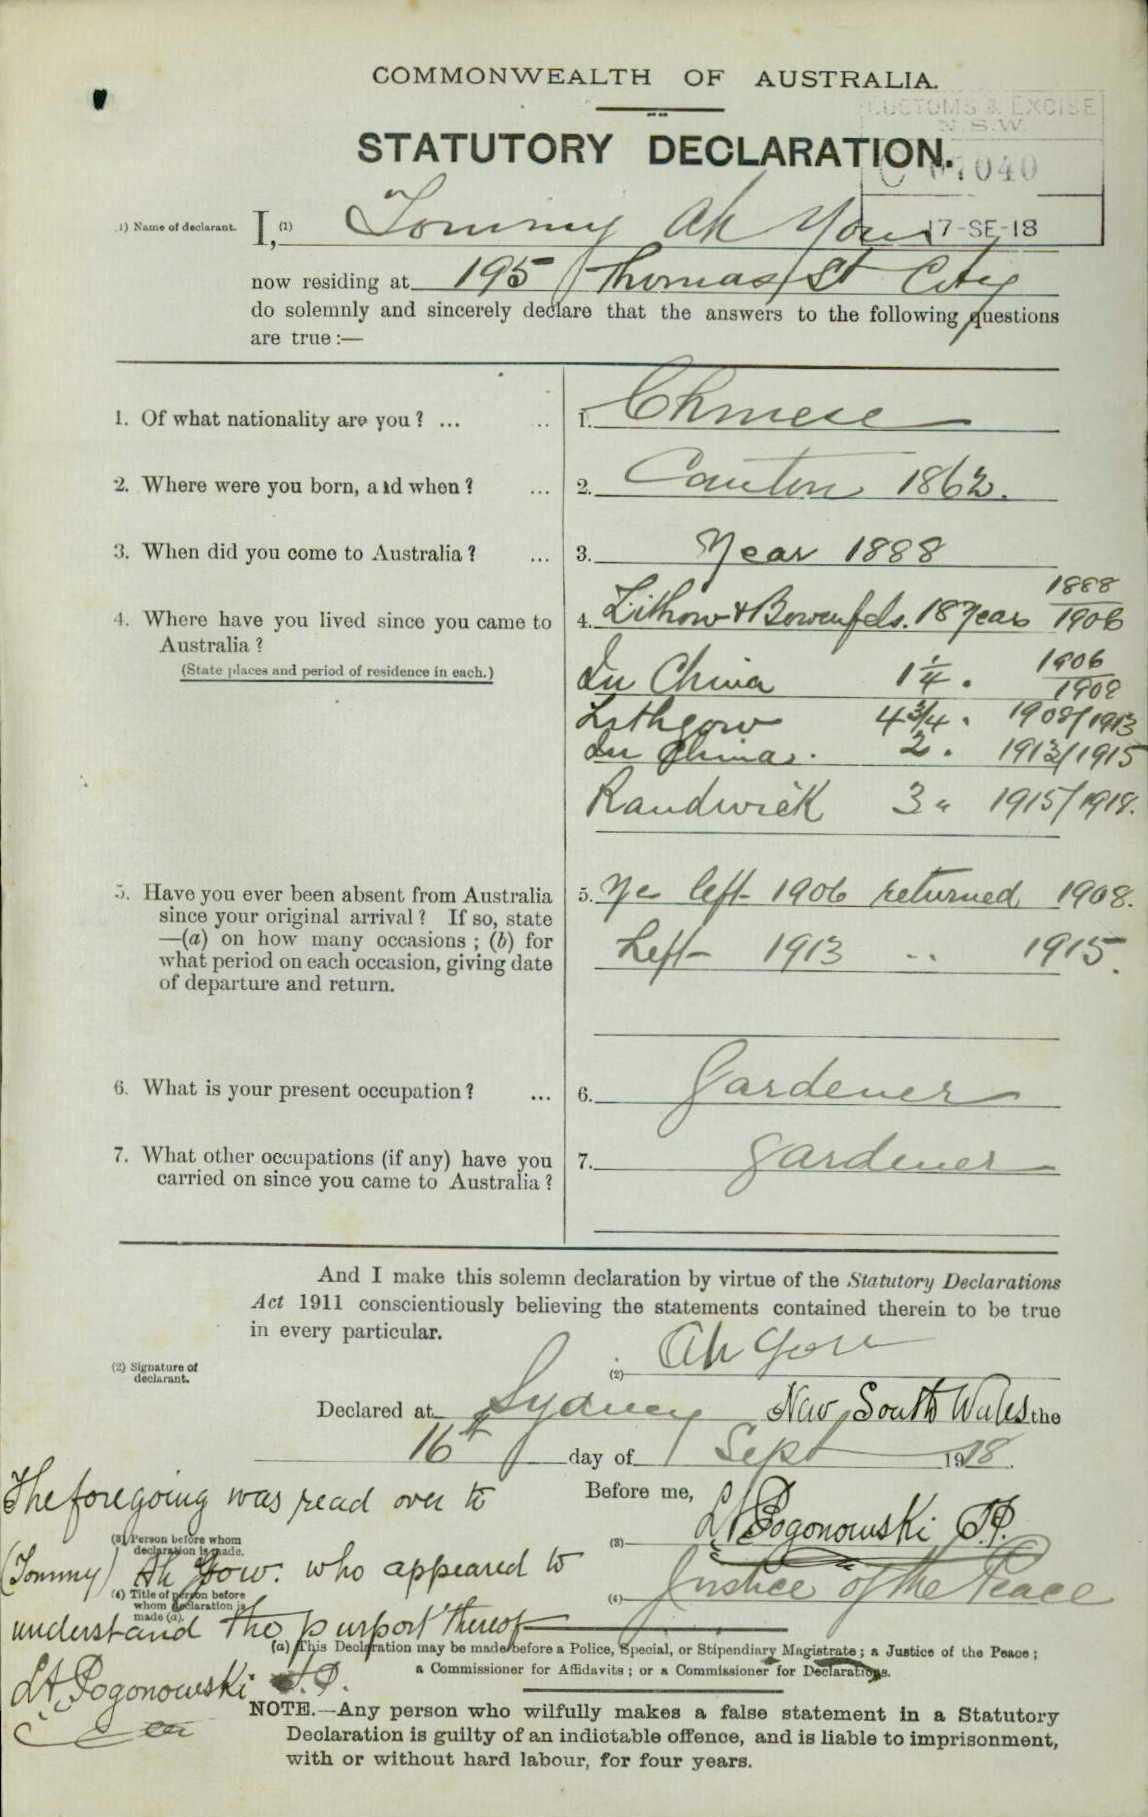 COMMONWEALTH OF AUSTRALIA.
CUSTOMS & EXCISE
N.S.W.
STATUTORY DECLARATION.
7040
17-SE-18
(1) Name of declarant. I, (1) Tommy Ah You
now residing at 195 Thomas St City
do solemnly and sincerely declare that the answers to the following questions
are true :—
1. Of what nationality are you ? ... .. 1. Chinese
2. Where were you born, and when ? ... 2. Canton 1862.
3. When did you come to Australia ? ... 3. Year 1888
4. Where have you lived since you came to 4. Lithow & Bowenfels. 18 Years 1888/1906
Australia ?
(State places and period of residence in each.) In China 1 1/4 . 1906/1908
Lithgow 4 3/4 . 1908/1913
In China . 2 . 1913/1915
Randwick 3 " 1915/1918.
5. Have you ever been absent from Australia 5. Ye left 1906 returned 1908.
since your original arrival ? If so, state
—(a) on how many occasions ; (b) for Left 1913 .. 1915.
what period on each occasion, giving date
of departure and return.
6. What is your present occupation ? ... 6. Gardener
7. What other occupations (if any) have you 7. Gardener
carried on since you came to Australia ?
And I make this solemn declaration by virtue of the Statutory Declarations
Act 1911 conscientiously believing the statements contained therein to be true
in every particular.
(2) Signature of
declarant.
(2) Ah Yow
Declared at Sydney New South Wales the
16th day of Sept 1918.
Before me,
The foregoing was read over to
(3) Person before whom
declaration is made.
(3) L A Pogonowski J.P.
(Tommy) Ah Yow. who appeared to
(4) Title of person before
whom declaration is
made (a).
(4) Justice of the Peace
understand the purport thereof
(a) This Declaration may be made before a Police, Special, or Stipendiary Magistrate ; a Justice of the Peace ;
a Commissioner for Affidavits ; or a Commissioner for Declarations.
L A Pogonowski J.P.
NOTE.—Any person who wilfully makes a false statement in a Statutory
Declaration is guilty of an indictable offence, and is liable to imprisonment,
with or without hard labour, for four years.